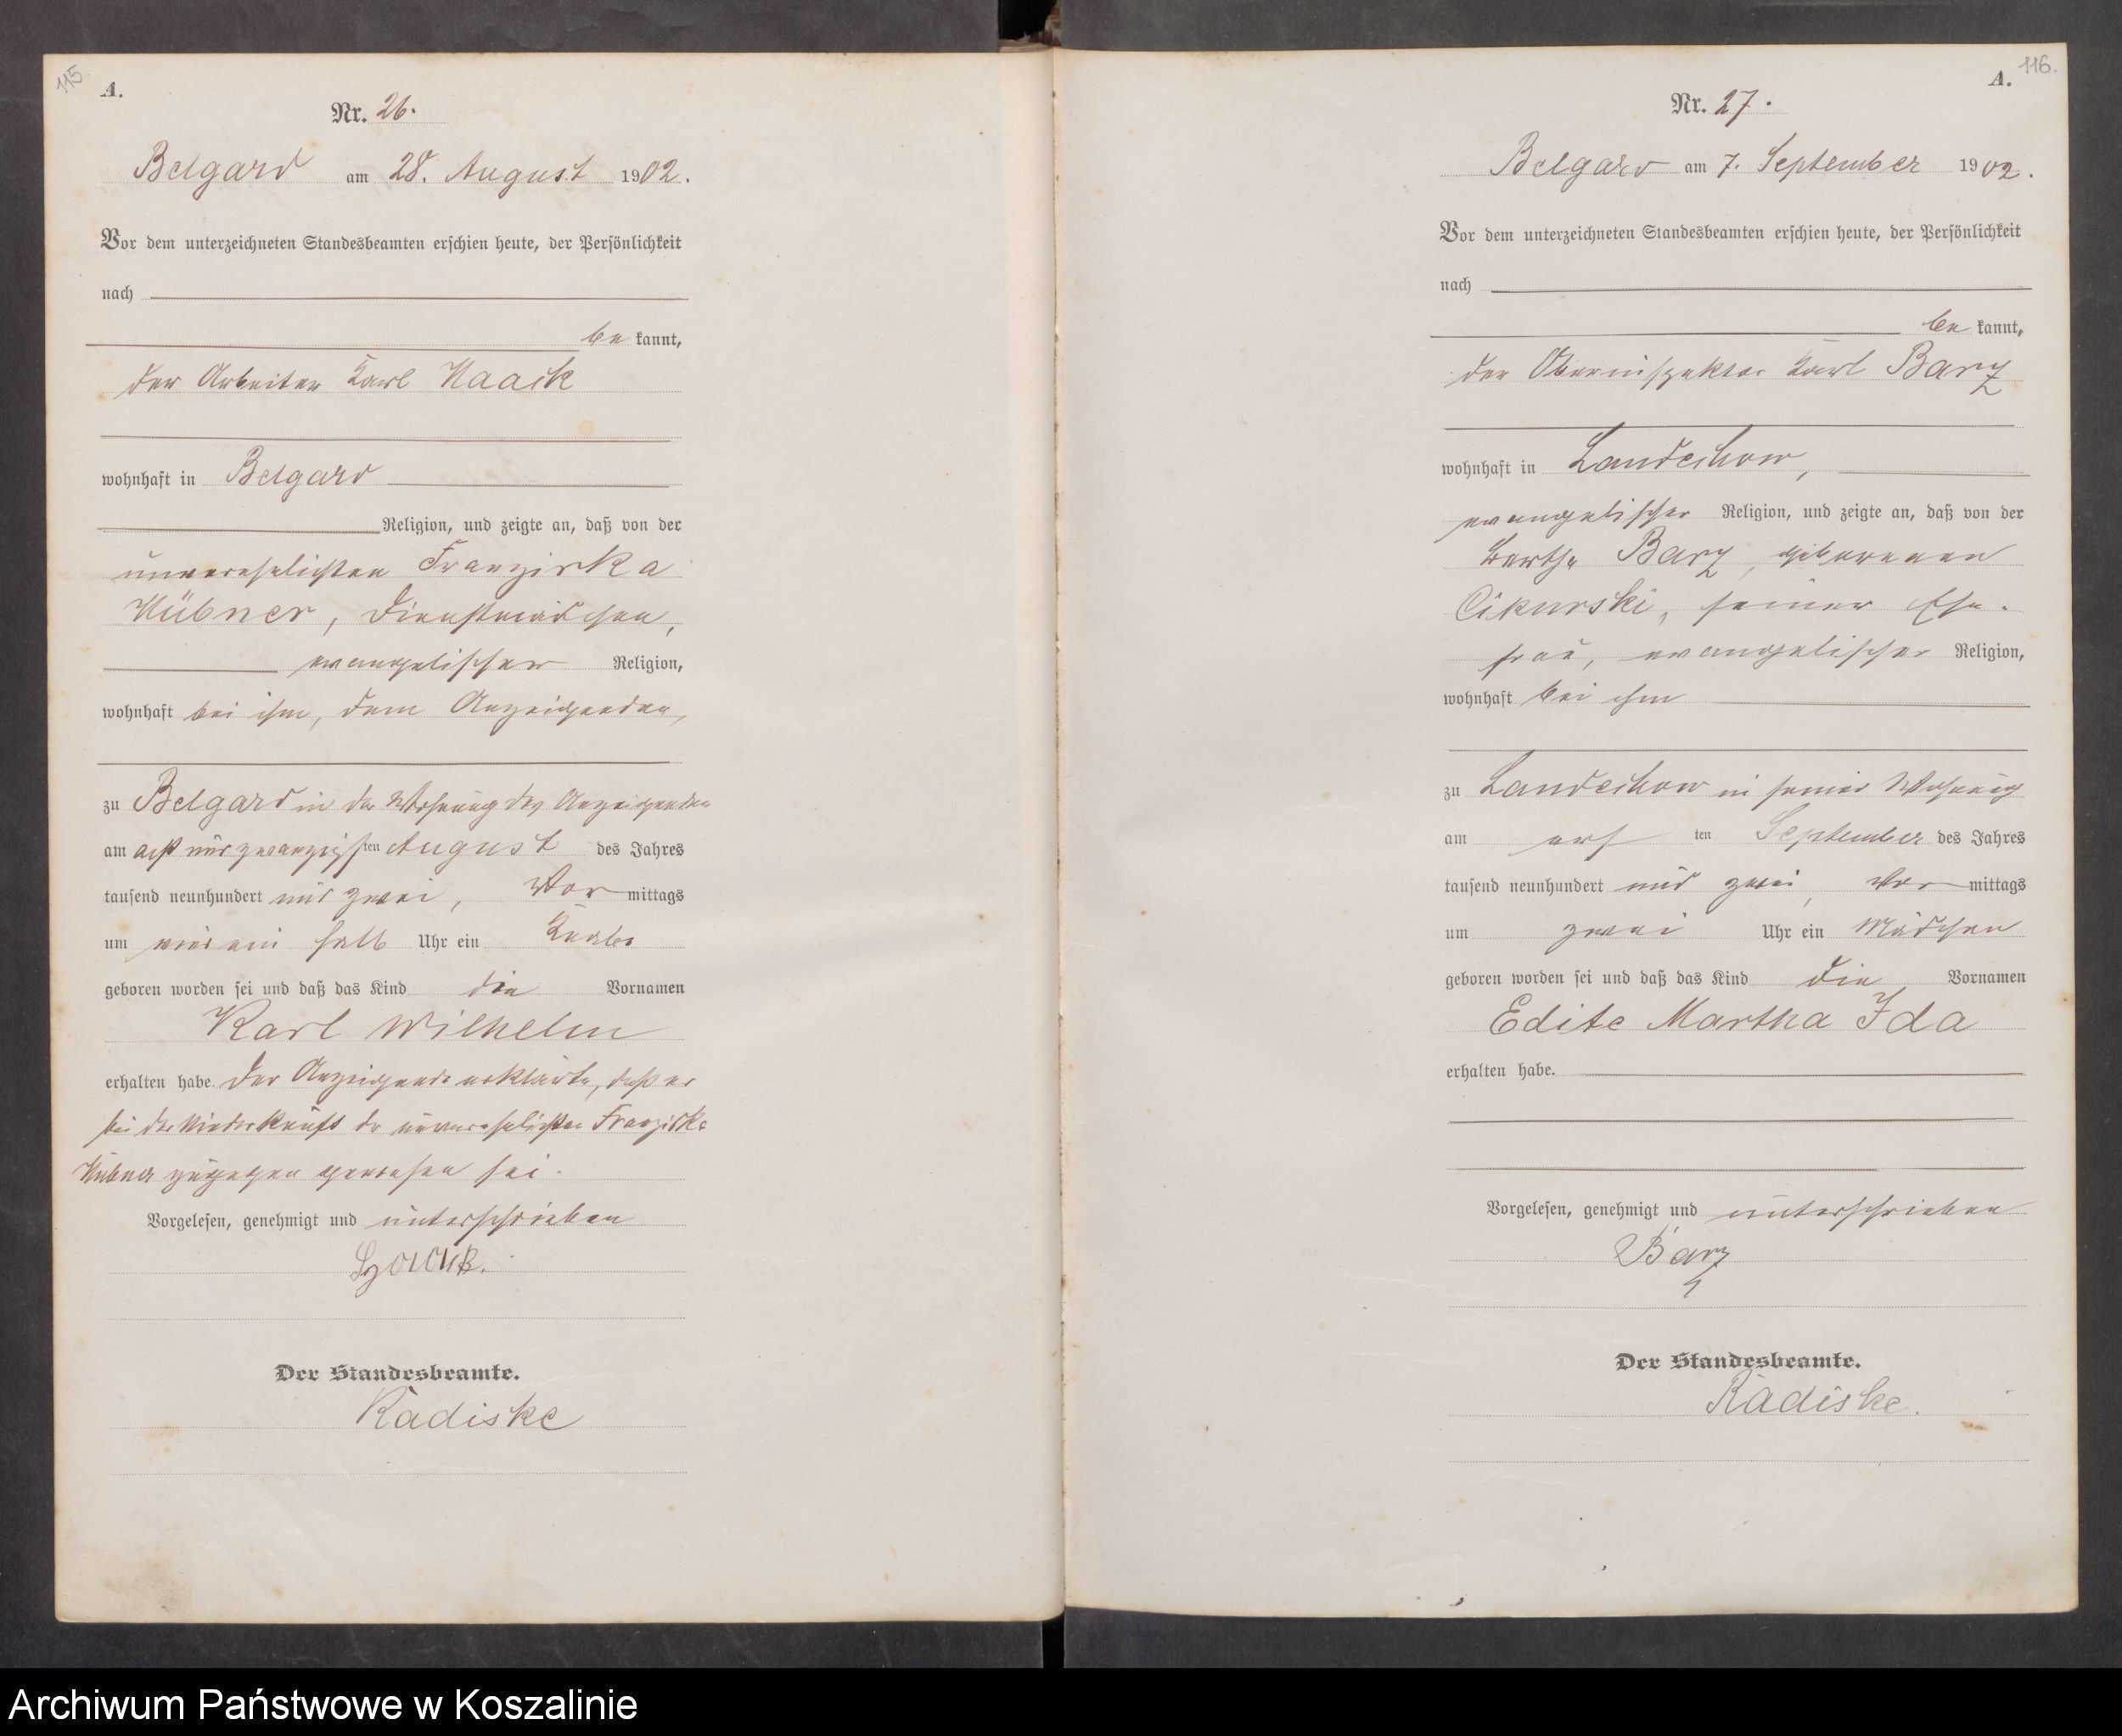 115
A.
Nr. 26.
Belgard am 28. August 1902.
Vor dem unterzeichneten Standesbeamten erschien heute, der Persönlichkeit
nach
be kannt,
der Arbeiter Karl Haack
wohnhaft in Belgard
Religion, und zeigte an, daß von der
unverehelichten Franziska
Hübner, Dienstmädchen,
evangelischer Religion,
wohnhaft bei ihm, dem Anzeigenden,
zu Belgard in der Wohnung des Anzeigenden
am acht und zwanzigsten August des Jahres
tausend neunhundert und zwei, Vor mittags
um halb Uhr ein Knabe
geboren worden sei und daß das Kind die Vornamen
Karl Wilhelm
erhalten habe. Der Anzeigende erklärte, daß er
bei der Niederkunft der unverehelichten Franziska
Hübner zugegen gewesen sei.
Vorgelesen, genehmigt und unterschrieben
Haack.
Der Standesbeamte.
Radiske
116.
A.
Nr. 27.
Belgard am 7. September 1902.
Vor dem unterzeichneten Standesbeamten erschien heute, der Persönlichkeit
nach
be kannt,
der Oberinspektor Karl Barz
wohnhaft in Landechow,
evangelischer Religion, und zeigte an, daß von der
Bertha Barz, geborenen
Cikurski, seiner Ehe-
frau, evangelischer Religion,
wohnhaft bei ihm
zu Landechow in seiner Wohnung
am ersten September des Jahres
tausend neunhundert und zwei, Vor mittags
um zwei Uhr ein Mädchen
geboren worden sei und daß das Kind die Vornamen
Edite Martha Ida
erhalten habe.
Vorgelesen, genehmigt und unterschrieben
Barz
Der Standesbeamte.
Radiske.
Archiwum Państwowe w Koszalinie